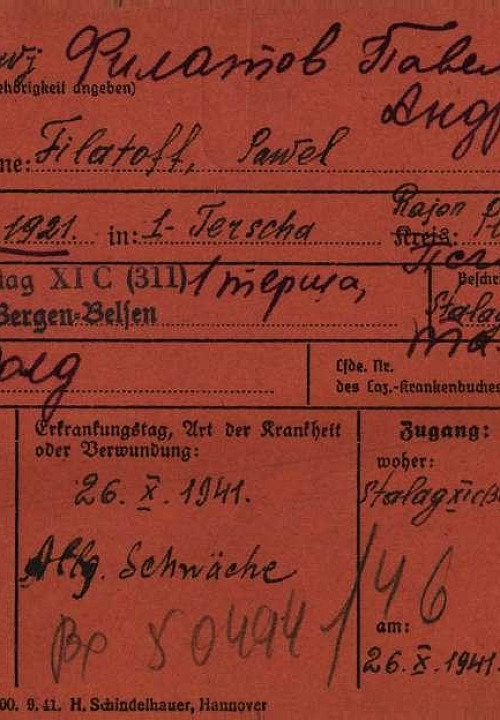 Филатов Павел
ehörigkeit angeben)
Андр
me: Filatoff, Pawel
Rajon
1921. in: 1- Terscha Kreis:
lag XI C (311) 1 терша,
Bergen-Belsen
Besche
Stalag
Lfde. Nr.
des Laz.-Krankenbuches
Erkrankungstag, Art der Krankheit
oder Verwundung:
Zugang:
woher:
26. X. 1941.
Stalag XI C B
Allg. Schwäche
Вр 50494 / 46
am:
26. X. 1941.
00. 9. 41. H. Schindelhauer, Hannover